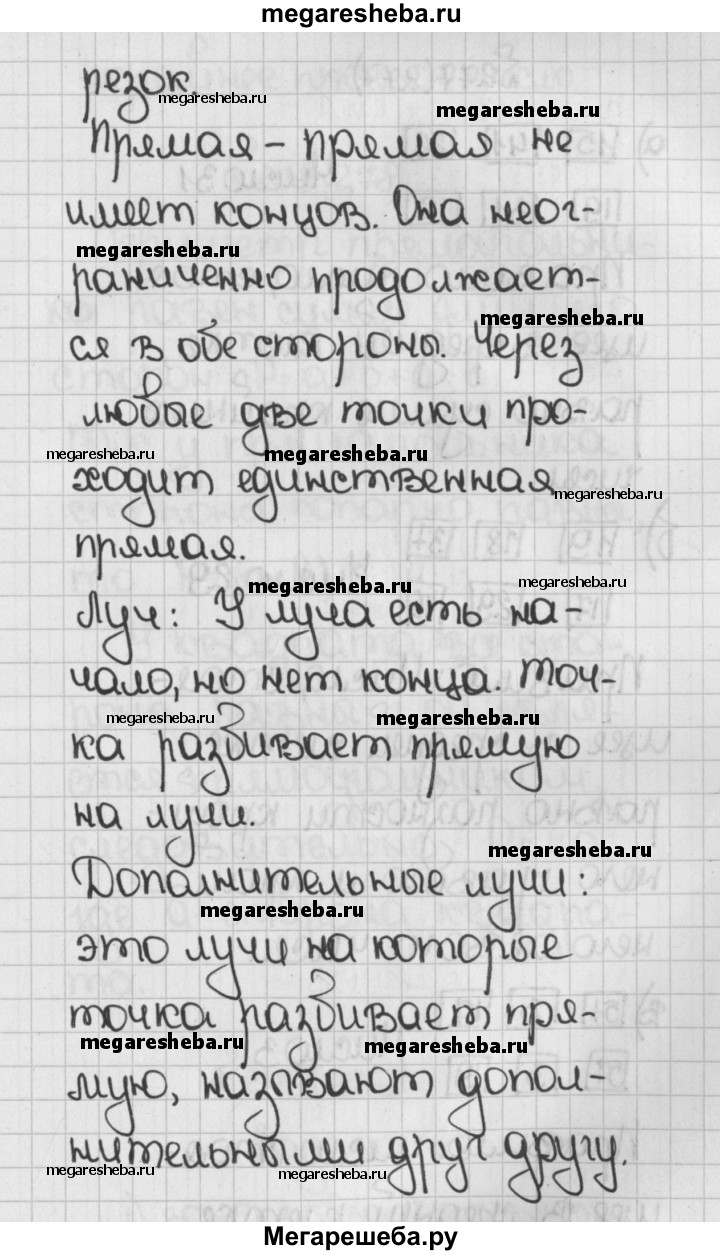 megaresheba.ru
резок.
megaresheba.ru
megaresheba.ru
Прямая – прямая не
имеет концов. Она неог-
megaresheba.ru
раниченно продолжает-
megaresheba.ru
ся в обе стороны. Через
любые две точки про-
megaresheba.ru megaresheba.ru
ходит единственная
megaresheba.ru
прямая.
megaresheba.ru megaresheba.ru
Луч: У луча есть на-
чало, но нет конца. Точ-
megaresheba.ru megaresheba.ru
ка разбивает прямую
на лучи.
megaresheba.ru
Дополнительные лучи:
megaresheba.ru
это лучи на которые
точка разбивает пря-
megaresheba.ru megaresheba.ru
мую, называют допол-
нительными друг другу.
megaresheba.ru megaresheba.ru
Мегарешеба.ру